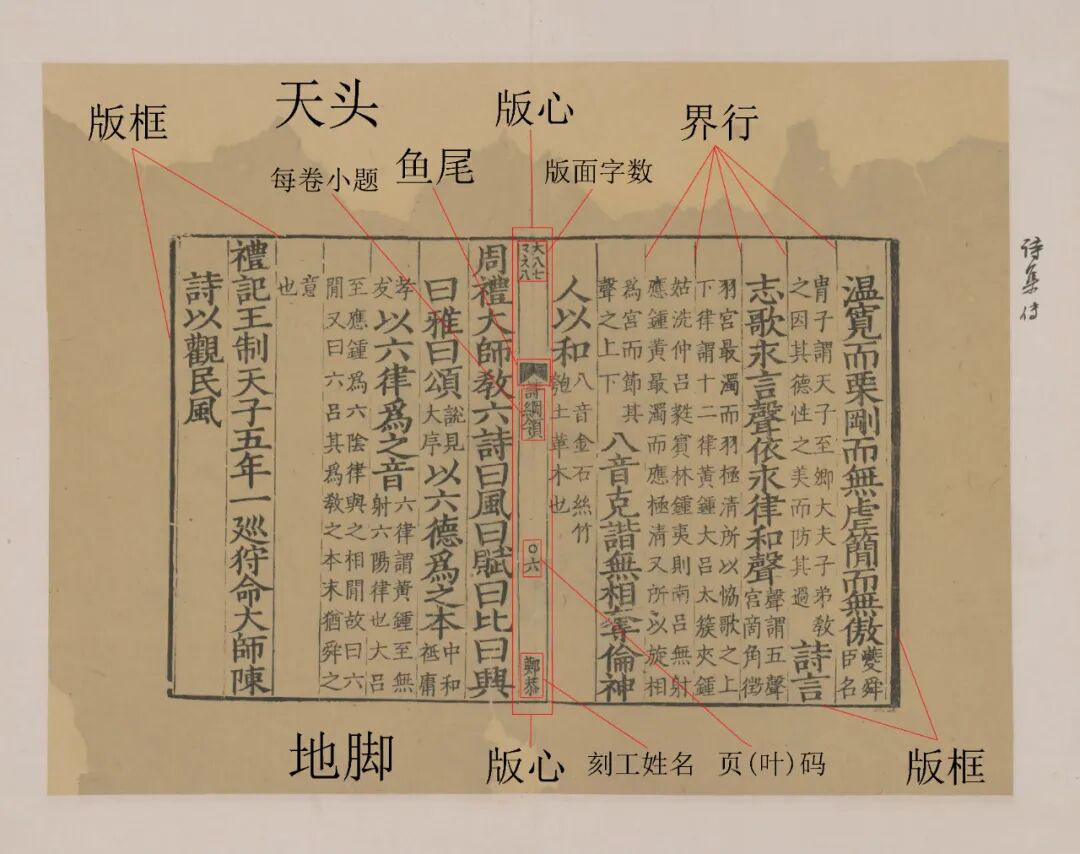 天头
版框
版心
界行
鱼尾
每卷小题
版面字数
詩集傳
温寛而栗剛而無虐簡而無傲夔舜
臣名
胄子謂天子至卿大夫子弟敎
之因其德性之美而防其過
詩言
志歌永言聲依永律和聲聲謂五聲
宮商角徵
羽宮最濁而羽極清所以恊歌之上
下律謂十二律黃鍾大吕太簇夾鍾
姑洗仲吕蕤賓林鍾夷則南吕無射
應鍾黃最濁而應極清又所以旋相
爲宮而節其
聲之上下
八音克諧無相奪倫神
人以和八音金石絲竹
匏土革木也
大八七
詩綱領
〇六
鄭恭
周禮大師敎六詩曰風曰賦曰比曰興
曰雅曰頌說見
大序
以六德爲之本中和
祗庸
孝
友
以六律爲之音六律謂黃鍾至無
射六陽律也大吕
至應鍾爲六陰律與之相間故曰六
間又曰六吕其爲敎之本末猶舜之
意
也
禮記王制天子五年一廵狩命大師陳
詩以觀民風
地脚
版心
刻工姓名
页(叶)码
版框